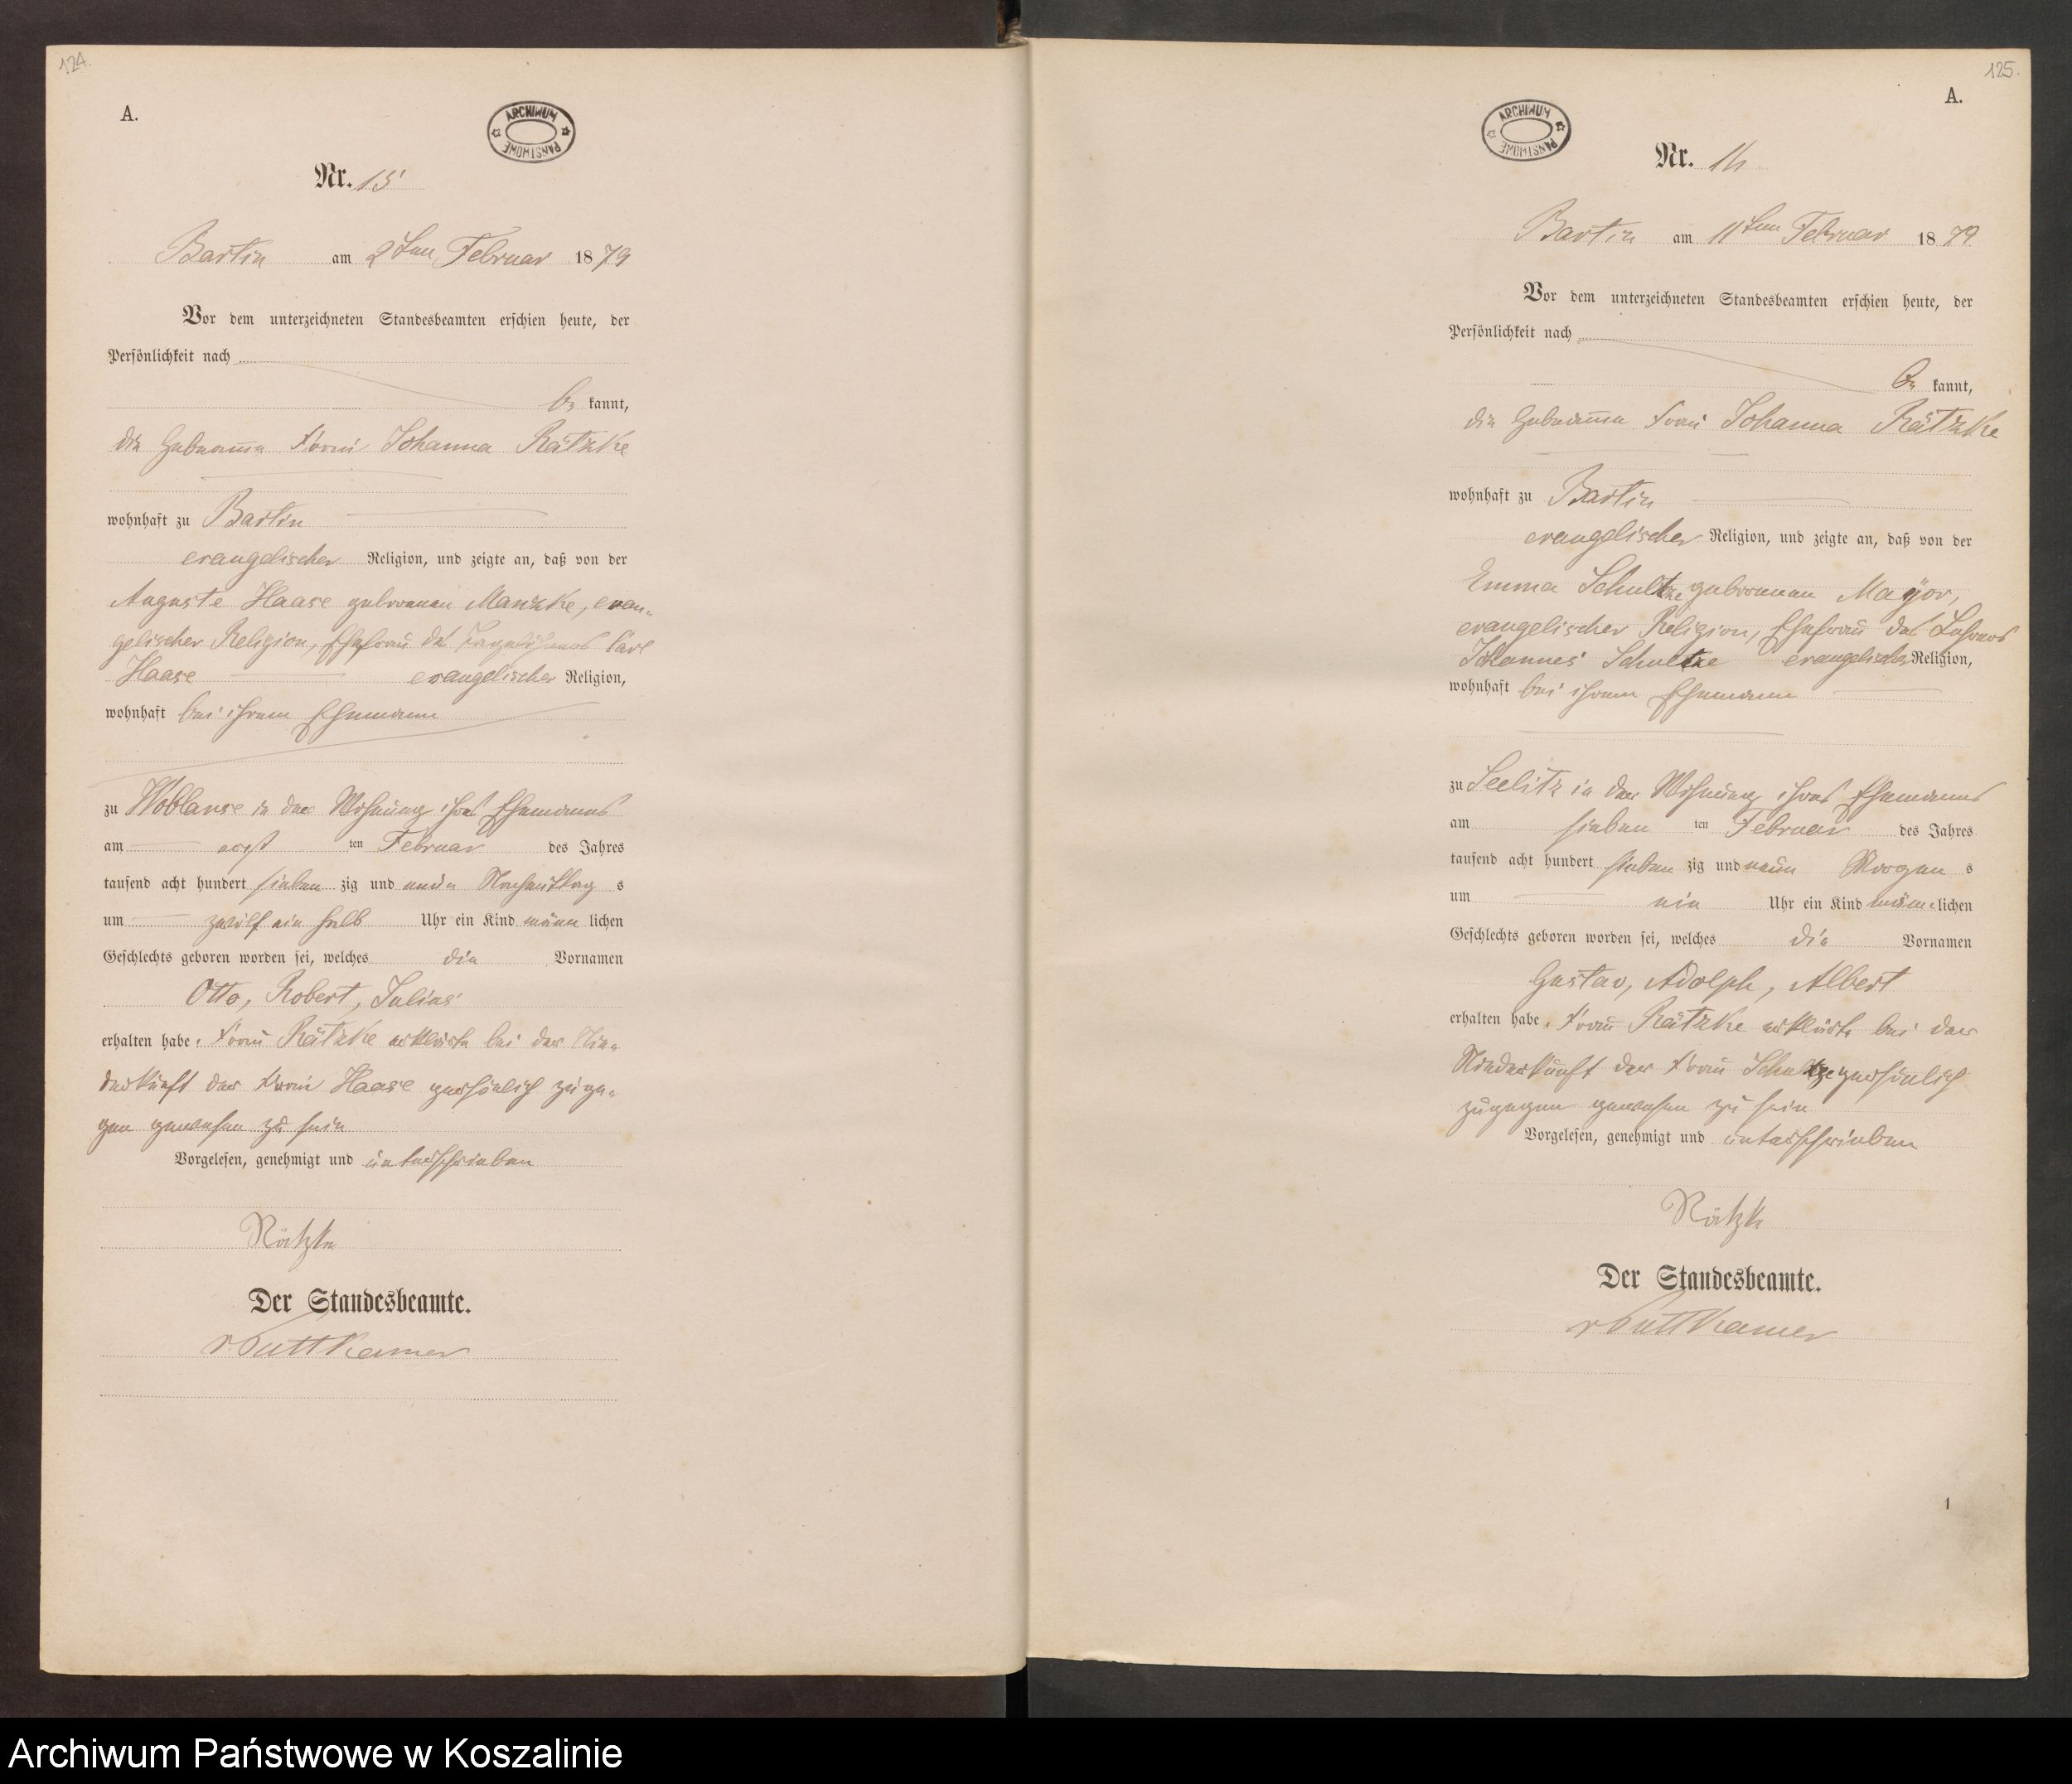 124.
A.
ARCHIWUM PAŃSTWOWE
Nr. 15
Bartin am 2ten Februar 1879
Vor dem unterzeichneten Standesbeamten erschien heute, der
Persönlichkeit nach
be kannt,
die Hebamme Frau Johanna Rätzke
wohnhaft zu Bartin
evangelischer Religion, und zeigte an, daß von der
Auguste Haase geborenen Manzke, evan-
gelischer Religion, Ehefrau des Tagelöhners Carl
Haase evangelischer Religion,
wohnhaft bei ihrem Ehemann
zu Woblanse in der Wohnung ihres Ehemanns
am erst ten Februar des Jahres
tausend acht hundert sieben zig und neun Nachmittag s
um zwölf ein halb Uhr ein Kind männ lichen
Geschlechts geboren worden sei, welches die Vornamen
Otto, Robert, Julius
erhalten habe. Frau Rätzke erklärte bei der Nie-
derkunft der Frau Haase persönlich zuge-
gen gewesen zu sein
Vorgelesen, genehmigt und unterschrieben
Rätzke
Der Standesbeamte.
v Puttkamer
125.
A.
ARCHIWUM PAŃSTWOWE
Nr. 16
Bartin am 11ten Februar 1879
Vor dem unterzeichneten Standesbeamten erschien heute, der
Persönlichkeit nach
be kannt,
die Hebamme Frau Johanna Rätzke
wohnhaft zu Bartin
evangelischer Religion, und zeigte an, daß von der
Emma Schultze geborenen Mayor,
evangelischer Religion, Ehefrau des Lehrers
Johannes Schultze evangelischer Religion,
wohnhaft bei ihrem Ehemann
zu Seelitz in der Wohnung ihres Ehemanns
am sieben ten Februar des Jahres
tausend acht hundert sieben zig und neun Morgen s
um ein Uhr ein Kind männ lichen
Geschlechts geboren worden sei, welches die Vornamen
Gustav, Adolph, Albert
erhalten habe. Frau Rätzke erklärte bei der
Niederkunft der Frau Schultze persönlich
zugegen gewesen zu sein
Vorgelesen, genehmigt und unterschrieben
Rätzk
Der Standesbeamte.
v Puttkamer
1
Archiwum Państwowe w Koszalinie